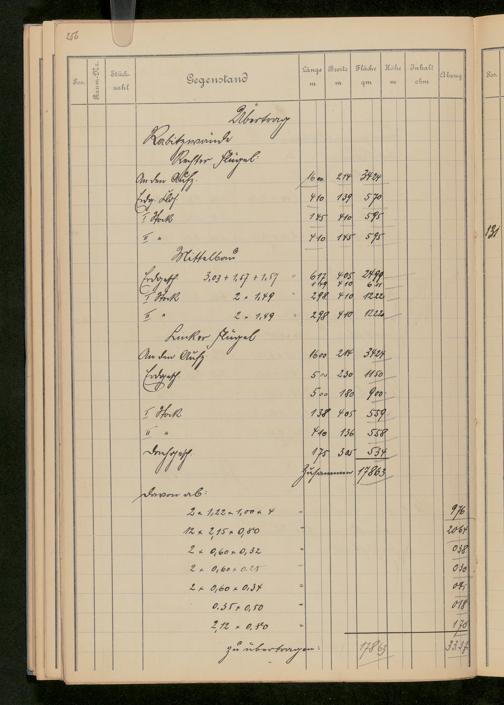 256
Pos. Raum-Nr. Stückzahl Gegenstand Länge m Breite m Fläche qm Höhe m Inhalt cbm Abzug Pos.
Übertrag
Rabitzwände
Rechter Flügel.
An den Aufz. 1600 214 3424
Erdg. 410 139 570
I Stock 145 410 595
II " 410 145 595
131
Mittelbau
Erdgesch 3,03 + 1,57 + 1,57 " 617 405 2499
149 410 611
I Stock 2 × 1,49 " 298 410 1222
II " 2 × 1,49 " 298 410 1222
Linker Flügel
An den Aufz 1600 214 3424
Erdgesch 500 230 1150
500 180 900
I Stock 138 405 559
II " 410 136 558
Dachgesch 175 305 534
Zusammen 17863
Davon ab:
2 × 1,22 × 1,00 × 4 " 976
12 × 2,15 × 0,80 " 2064
2 × 0,60 × 0,32 " 038
2 × 0,60 × 0,25 " 030
2 × 0,60 × 0,34 " 041
0,35 × 0,50 " 018
2,12 × 0,80 " 170
zu übertragen: 17863 3337